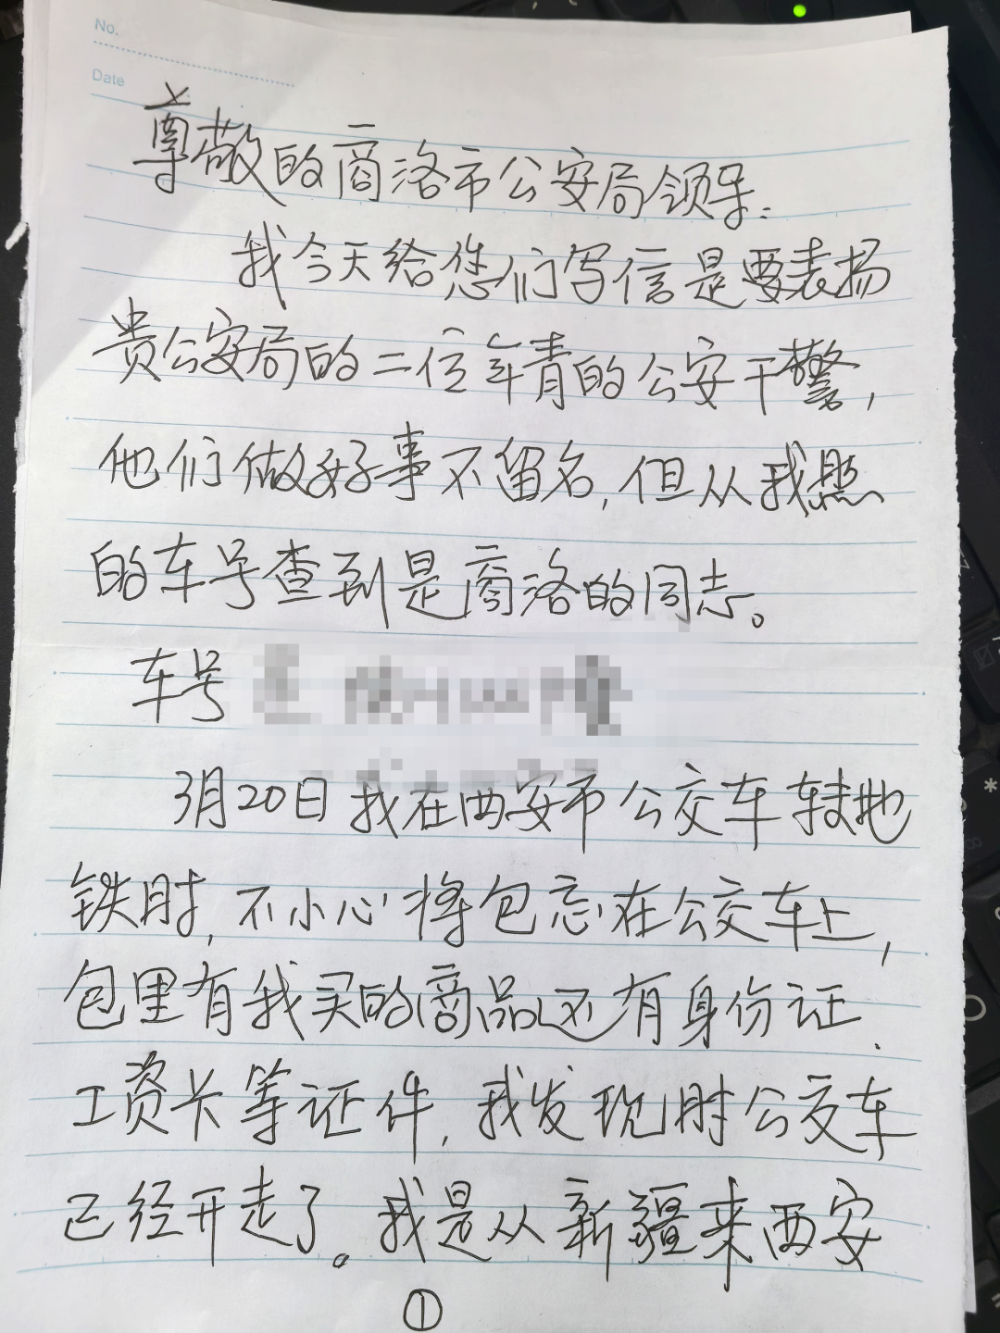 No.
Date
尊敬的商洛市公安局领导:
我今天给您们写信是要表扬
贵公安局的二位年青的公安干警,
他们做好事不留名,但从我照
的车号查到是商洛的同志。
车号
3月20日我在西安市公交车转地
铁时,不小心将包忘在公交车上,
包里有我买的商品还有身份证.
工资卡等证件,我发现时公交车
已经开走了。我是从新疆来西安
①